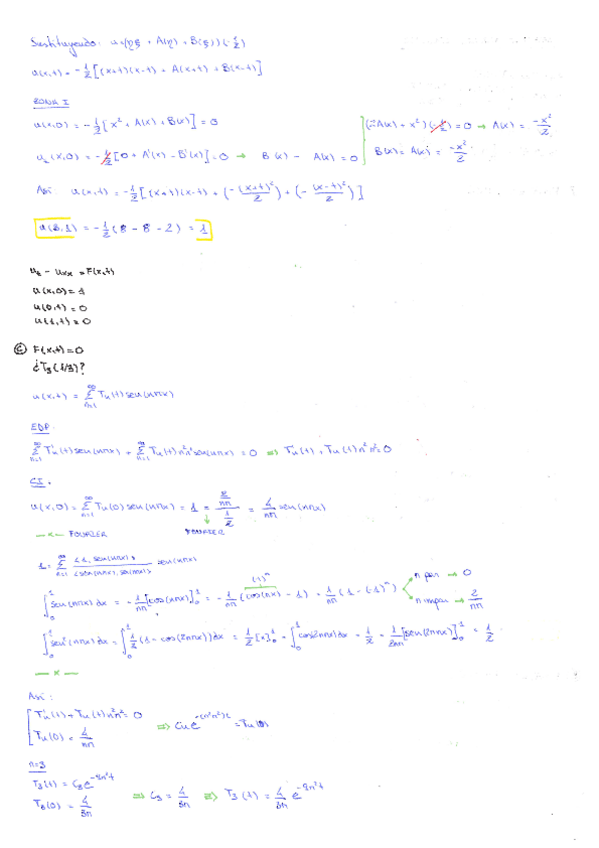 Sustituyendo: u = (ηξ + A(η) + B(ξ))(-1/2)
u(x,t) = -1/2 [(x+t)(x-t) + A(x+t) + B(x-t)]
ZONA I
u(x,0) = -1/2 [x² + A(x) + B(x)] = 0
(2A(x) + x²)(-1/2) = 0 → A(x) = -x²/2
u_t(x,0) = -1/2 [0 + A'(x) - B'(x)] = 0 → B(x) - A(x) = 0
B(x) = A(x) = -x²/2
Así: u(x,t) = -1/2 [(x+t)(x-t) + (-(x+t)²/2) + (-(x-t)²/2)]
u(3,1) = -1/2 (8 - 8 - 2) = 1
u_t - u_xx = F(x,t)
u(x,0) = 1
u(0,t) = 0
u(1,t) = 0
C F(x,t) = 0
¿T₃(1/3)?
u(x,t) = Σ_{n=1}^∞ Tn(t) sen(nπx)
EDP
Σ_{n=1}^∞ T'n(t) sen(nπx) + Σ_{n=1}^∞ Tn(t) n²π² sen(nπx) = 0 ⇒ T'n(t) + Tn(t) n²π² = 0
CI.
u(x,0) = Σ_{n=1}^∞ Tn(0) sen(nπx) = 1 = (2/nπ)/(1/2) = 4/nπ sen(nπx)
FOURIER
FOURIER
1 = Σ_{n=1}^∞ <1, sen(nπx)>/<sen(nπx), sen(nπx)> sen(nπx)
∫₀¹ sen(nπx) dx = -1/nπ [cos(nπx)]₀¹ = -1/nπ (cos(nπ) - 1) = 1/nπ (1 - (-1)ⁿ)
(-1)ⁿ
n par → 0
n impar → 2/nπ
∫₀¹ sen²(nπx) dx = ∫₀¹ 1/2 (1 - cos(2nπx)) dx = 1/2 [x]₀¹ - ∫₀¹ cos(2nπx) dx = 1/2 - 1/2nπ [sen(2nπx)]₀¹ = 1/2
Así:
T'n(t) + Tn(t) n²π² = 0
Tn(0) = 4/nπ
⇒ Cn e^{-(n²π²)t} = Tn(t)
n=3
T₃(t) = C₃ e^{-9π²t}
T₃(0) = 4/3π
⇒ C₃ = 4/3π ⇒ T₃(t) = 4/3π e^{-9π²t}